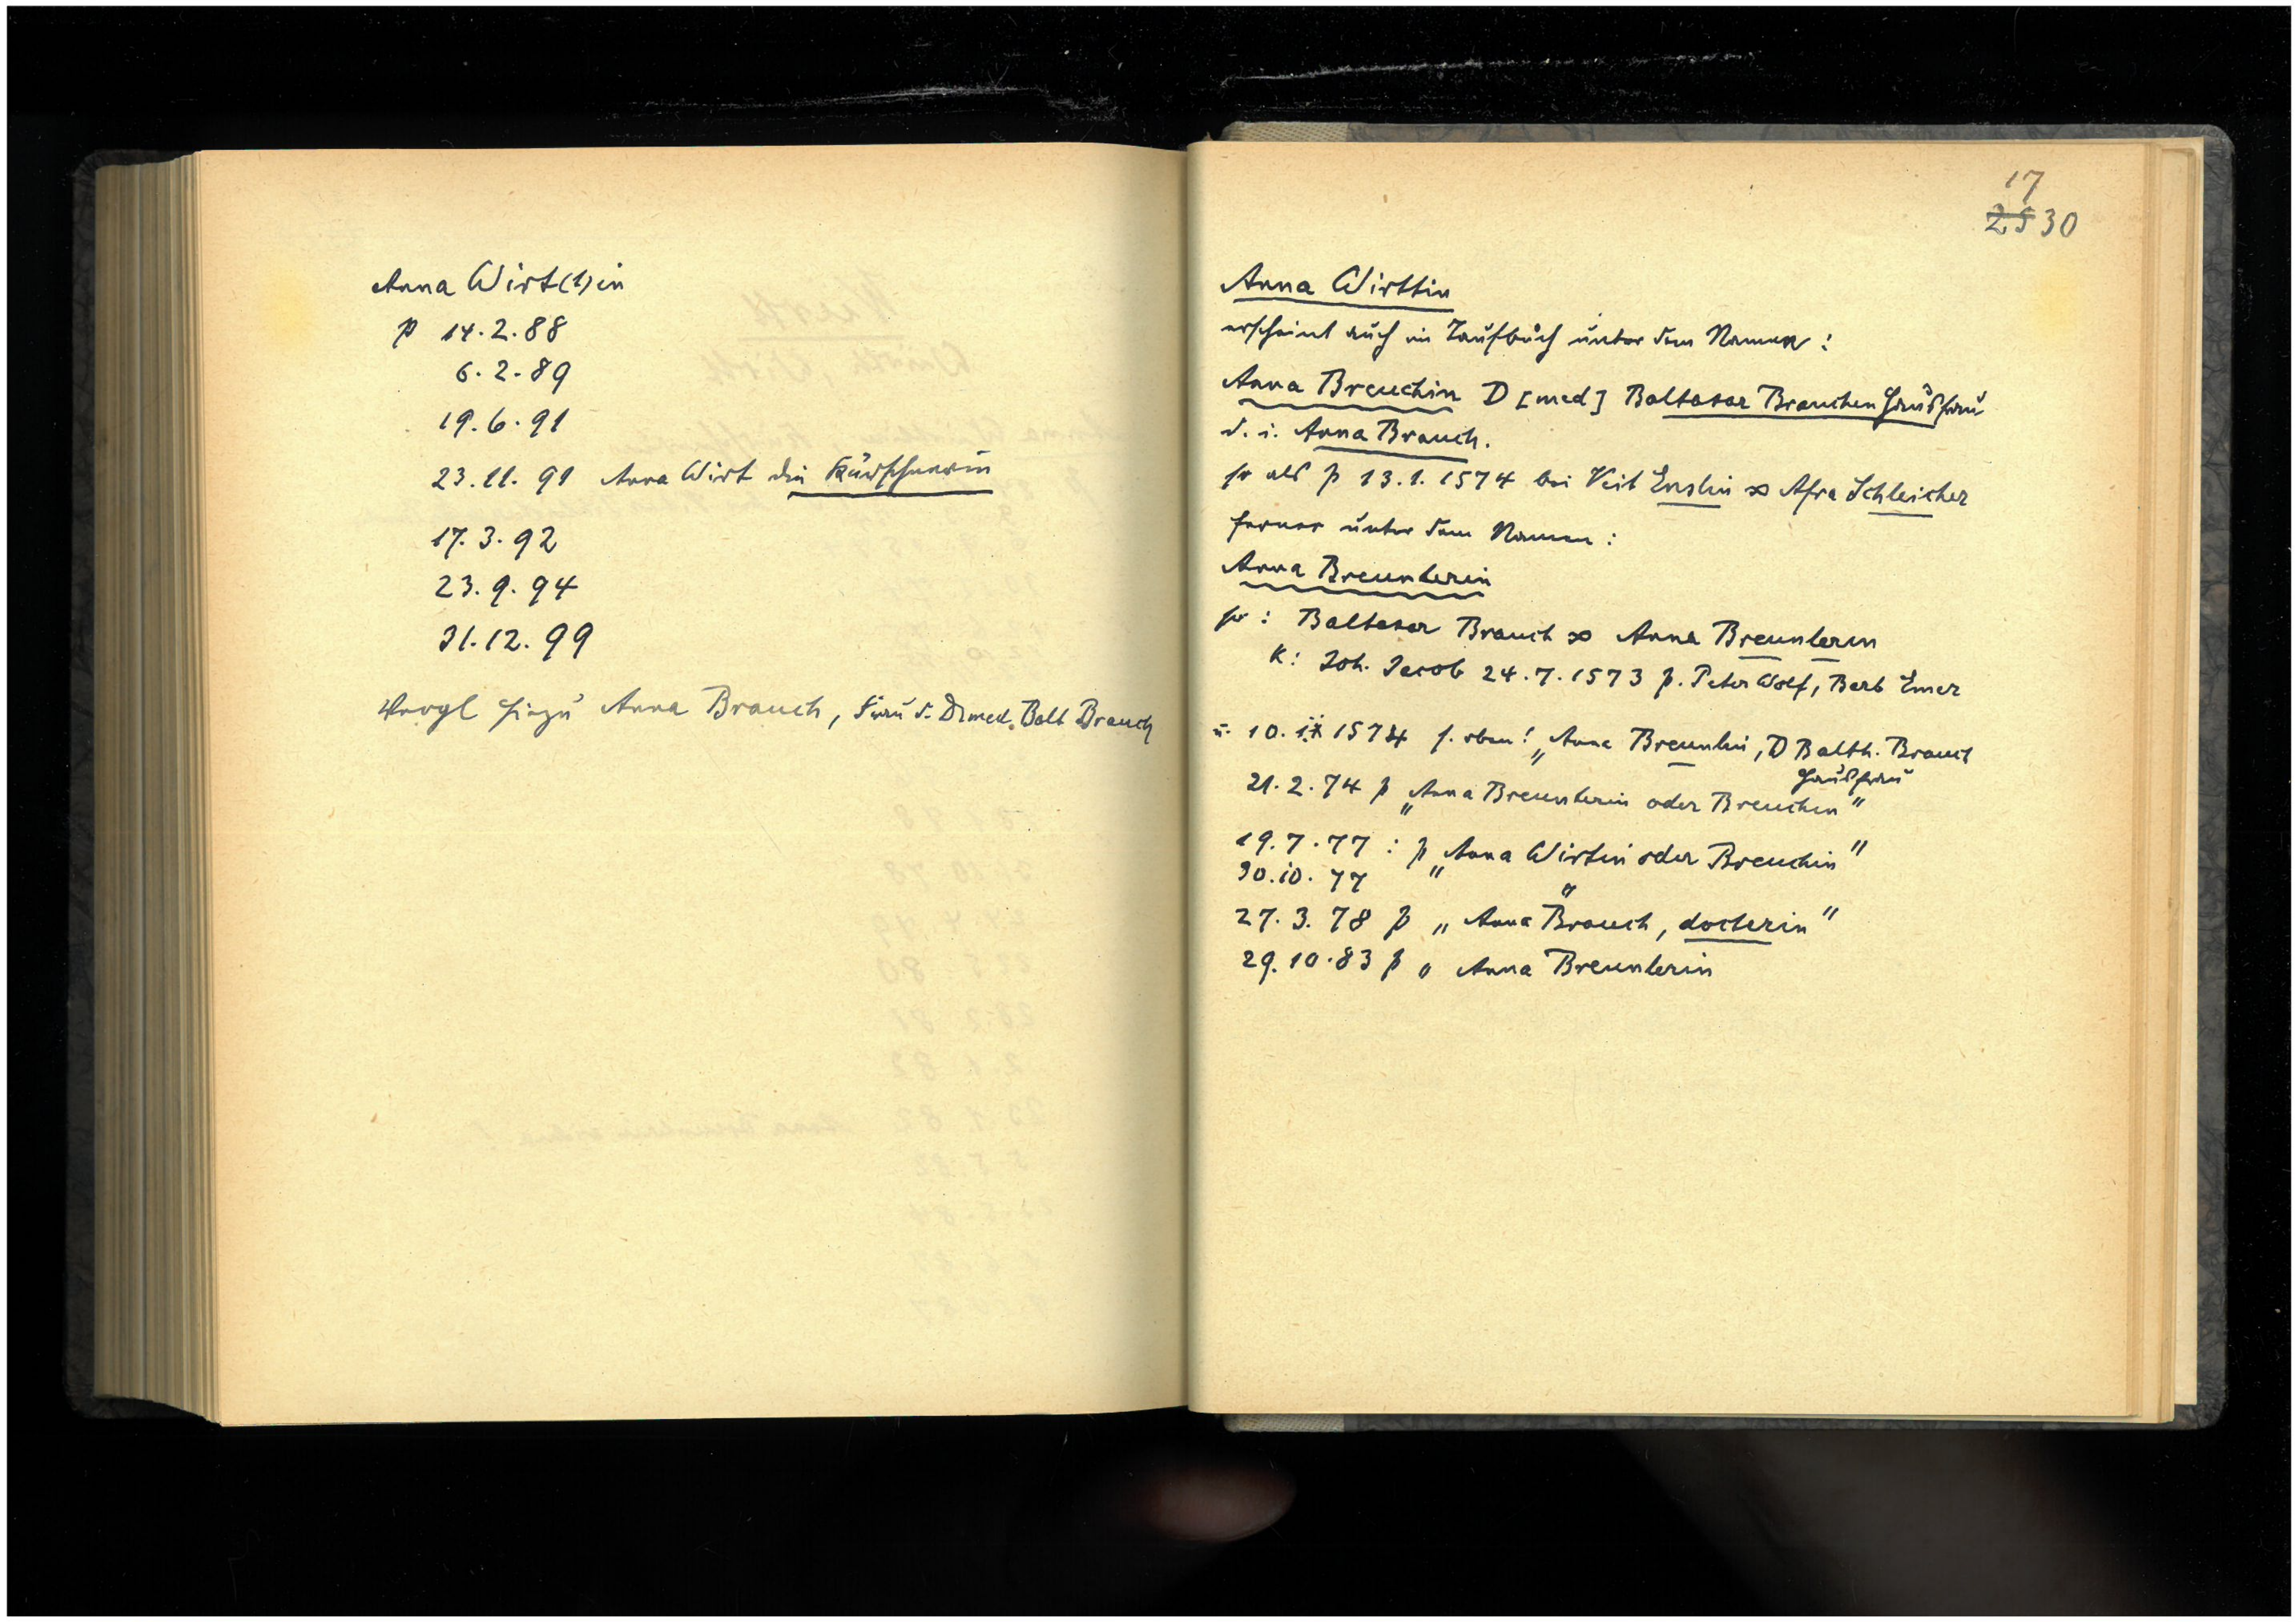 Anna Wirt(t)in
p 14.2.88
6.2.89
19.6.91
23.11.91 Anna Wirt die Kürschnerin
17.3.92
23.9.94
31.12.99
Vergl hiezu Anna Brauch, Frau d. Dr med. Balt Brauch
17
25 30
Anna Wirttin
erscheint auch im Taufbuch unter dem Namen:
Anna Breuchin D [med] Baltasar Brauchen Hausfrau
d. i. Anna Brauch.
so als p 13.1.1574 bei Veit Enslin ∞ Afra Schleicher
ferner unter dem Namen:
Anna Breunlerin
so: Baltasar Brauch ∞ Anna Breunlerin
K: Joh. Jacob 24.7.1573 p. Peter Wolf, Barb Emer
u. 10. 1574 s. oben! „Anna Breunlin, D Balth. Brauch
Hausfrau
21.2.74 p „Anna Breunlerin oder Breuchin"
19.7.77: p „Anna Wirtin oder Breuchin"
30.10.77 " "
27.3.78 p „Anna Brauch, docterin"
29.10.83 p „Anna Breunlerin